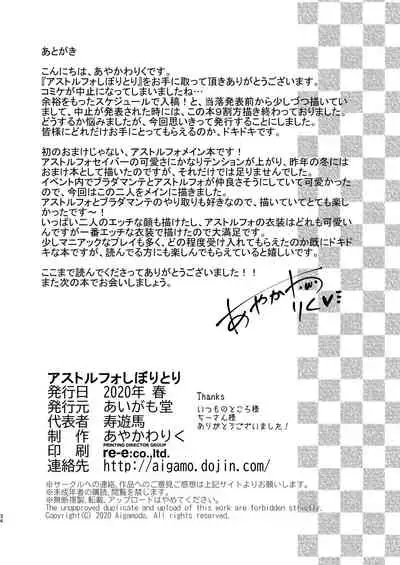 あとがき
こんにちは、あやかわりくです。
『アストルフォしぼりとり』をお手に取って頂きありがとうございます。
コミケが中止になってしまいましたね…
余裕をもったスケジュールで入稿！と、当落発表前から少しづつ描いていまして、中止が発表された時には、この本9割方描き終わっておりました。
どうするか悩みましたが、今回思いきって発行することにしました。
皆様にどれだけお手にとってもらえるのか、ドキドキです。
初のおまけじゃない、アストルフォメイン本です！
アストルフォセイバーの可愛さにかなりテンションが上がり、昨年の冬には
おまけ本として描いたのですが、それだけでは足りませんでした。
イベント内でブラダマンテとアストルフォが仲良さそうにしていて可愛かった
ので、今回はこの二人をメインに描きました。
アストルフォとブラダマンテのやり取りも好きなので、描いていてとても楽し
かったです～！
いっぱい二人のエッチな顔も描けたし、アストルフォの衣装はどれも可愛い
んですが一番エッチな衣装で描けたので大満足です。
少しマニアックなプレイも多く、どの程度受け入れてもらえたのか既にドキド
キな本ですが、読んでる方にも楽しんでもらえていると嬉しいです。
ここまで読んでくださってありがとうございました！！
また次の本でお会いしましょう。
あやかわりく
アストルフォしぼりとり
発行日 2020年 春
発行元 あいがも堂
代表者 寿遊馬
制作 あやかわりく
印刷 PRINTING DIRECTOR GROUP re-e:co.,ltd.
連絡先 http://aigamo.dojin.com/
Thanks
いつものところ様
ちーさん様
ありがとうございました！
※サークルへの連絡、作品へのご意見ご感想は上記サイトよりお願いします。
※未成年者の購読、閲覧を禁じます。
※無断複製、転載、アップロードはやめてください。
The unapproved duplicate and upload of this work are forbidden strictly.
Copyright(C) 2020 Aigamodo. All rights reserved.